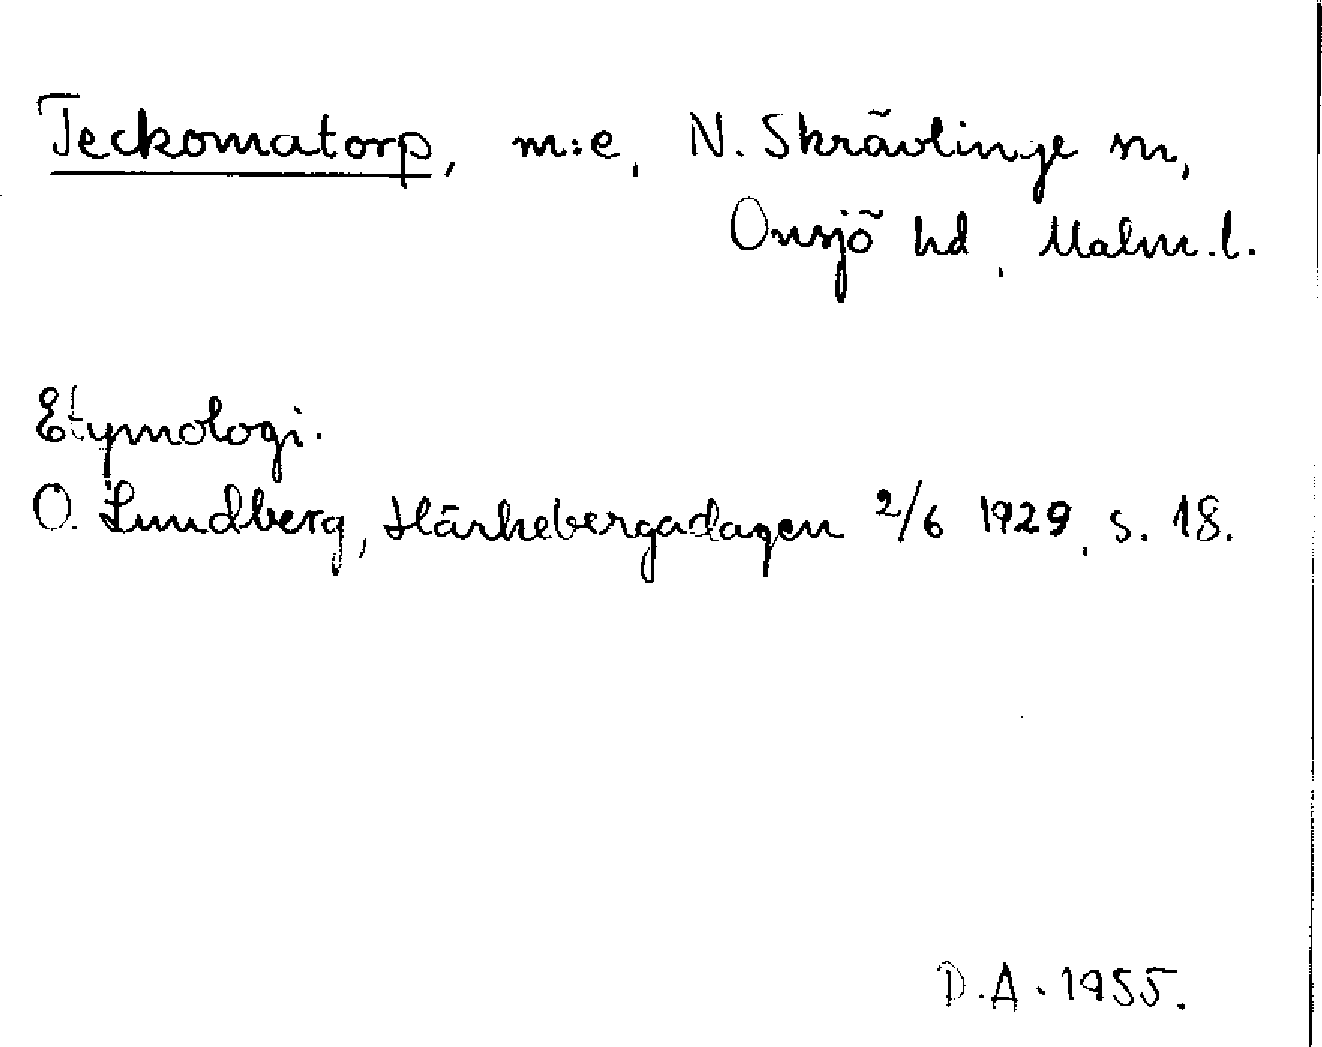 Teckomatorp, m:e, N. Skrävlinge sn,
Onsjö hd, Malm.l.
Etymologi.
O. Lundberg, Härkebergadagen 2/6 1929, s. 18.
D.A. 1955.